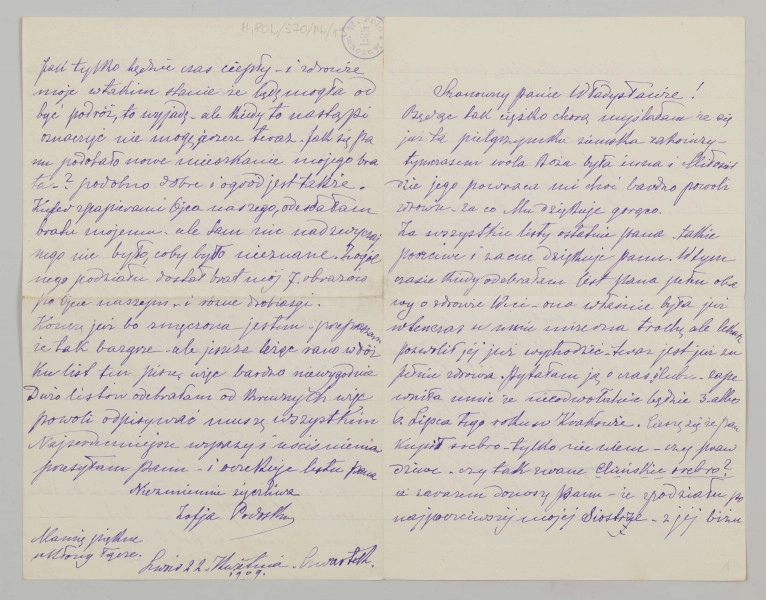 Szanowny panie Władysławie!
Będąc tak ciężko chorą myślałam że się
już ta pielgrzymka ziemska zakończy -
tymczasem wola Boża była inna i Miłosier
dzie jego powraca mi choć bardzo powoli
zdrowie - za co Mu dziękuję gorąco.
Za wszystkie listy ostatnie pana - takie
poczciwe i zacne dziękuję panu. W tym
czasie kiedy odebrałam list pana pełen oba
wy o zdrowie - ona właśnie była już
wtenczas u mnie trochę ale lekarz
pozwolił jej już wychodzić - teraz jest już zu
pełnie zdrowa. Pytałam ją o czas ślubu - zape
wniła mnie że nieodwołalnie będzie 3. albo
6. Lipca tego roku w Krakowie. Cieszę się że pan
kupił srebro - tylko nie wiem - czy praw
dziwe - czy tak zwane chińskie srebro?
zarazem donoszę panu - że z podziału po
najpoczciwszej mojej Siostrze - z jej biżu
Jak tylko będzie czas ciepły - i zdrowie
moje w takim stanie że będę mogła od
być podróż, to wyjadę - ale kiedy to nastąpi
oznaczyć nie mogę jeszcze teraz. Jak się pa
nu podobało nowe mieszkanie mojego bra
ta -? podobno dobre i ogród jest także.
Kufer z papierami Ojca naszego, odesłałam
bratu mojemu - ale tam nic nadzwyczaj
nego nie było, coby było nieznane. Z ogól
nego podziału dostał brat mój 7. obrazów
po Ojcu naszym - i różne drobiazgi.
Kończę już bo zmęczona jestem - przepraszam
że tak bazgrzę - ale jeszcze leżąc rano w łóż
ku list ten piszę więc bardzo niewygodnie
Dużo listów odebrałam od krewnych więc
powoli odpisywać muszę wszystkim
Najserdeczniejsze wyrazy i uściśnienia
przesyłam panu - i oczekuję listu pana
Niezmiennie życzliwa
Zofja
Mamie piękne
ukłony łączę.
Lwów 22. Kwietnia. Czwartek.
1909.